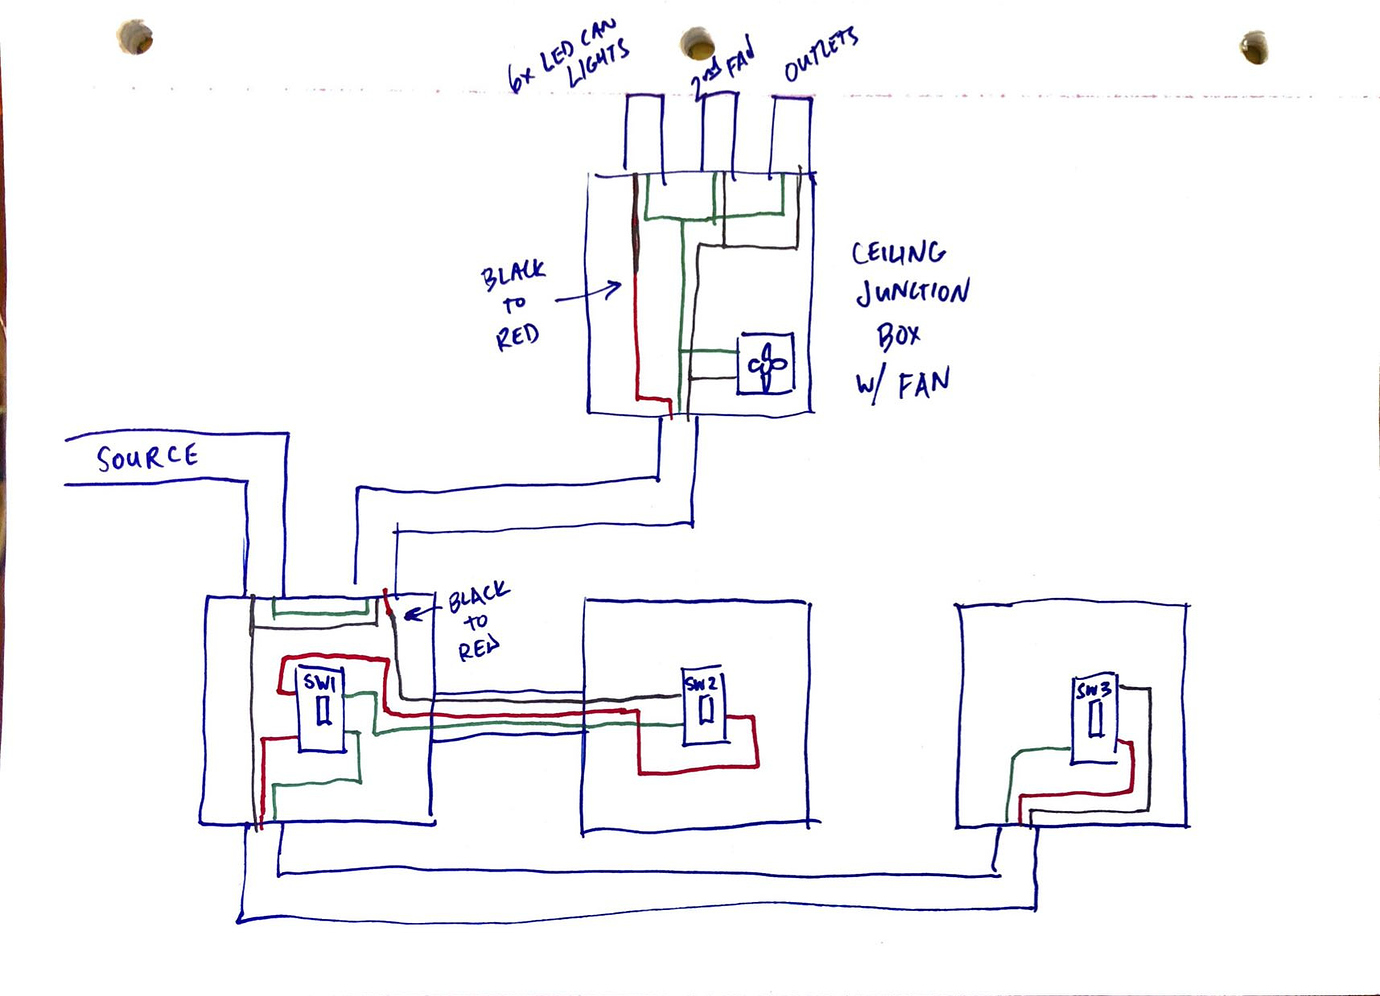 6x LED CAN
LIGHTS
2nd FAN
OUTLETS
BLACK
TO
RED
CEILING
JUNCTION
BOX
W/ FAN
SOURCE
BLACK
TO
RED
SW1
SW2
SW3